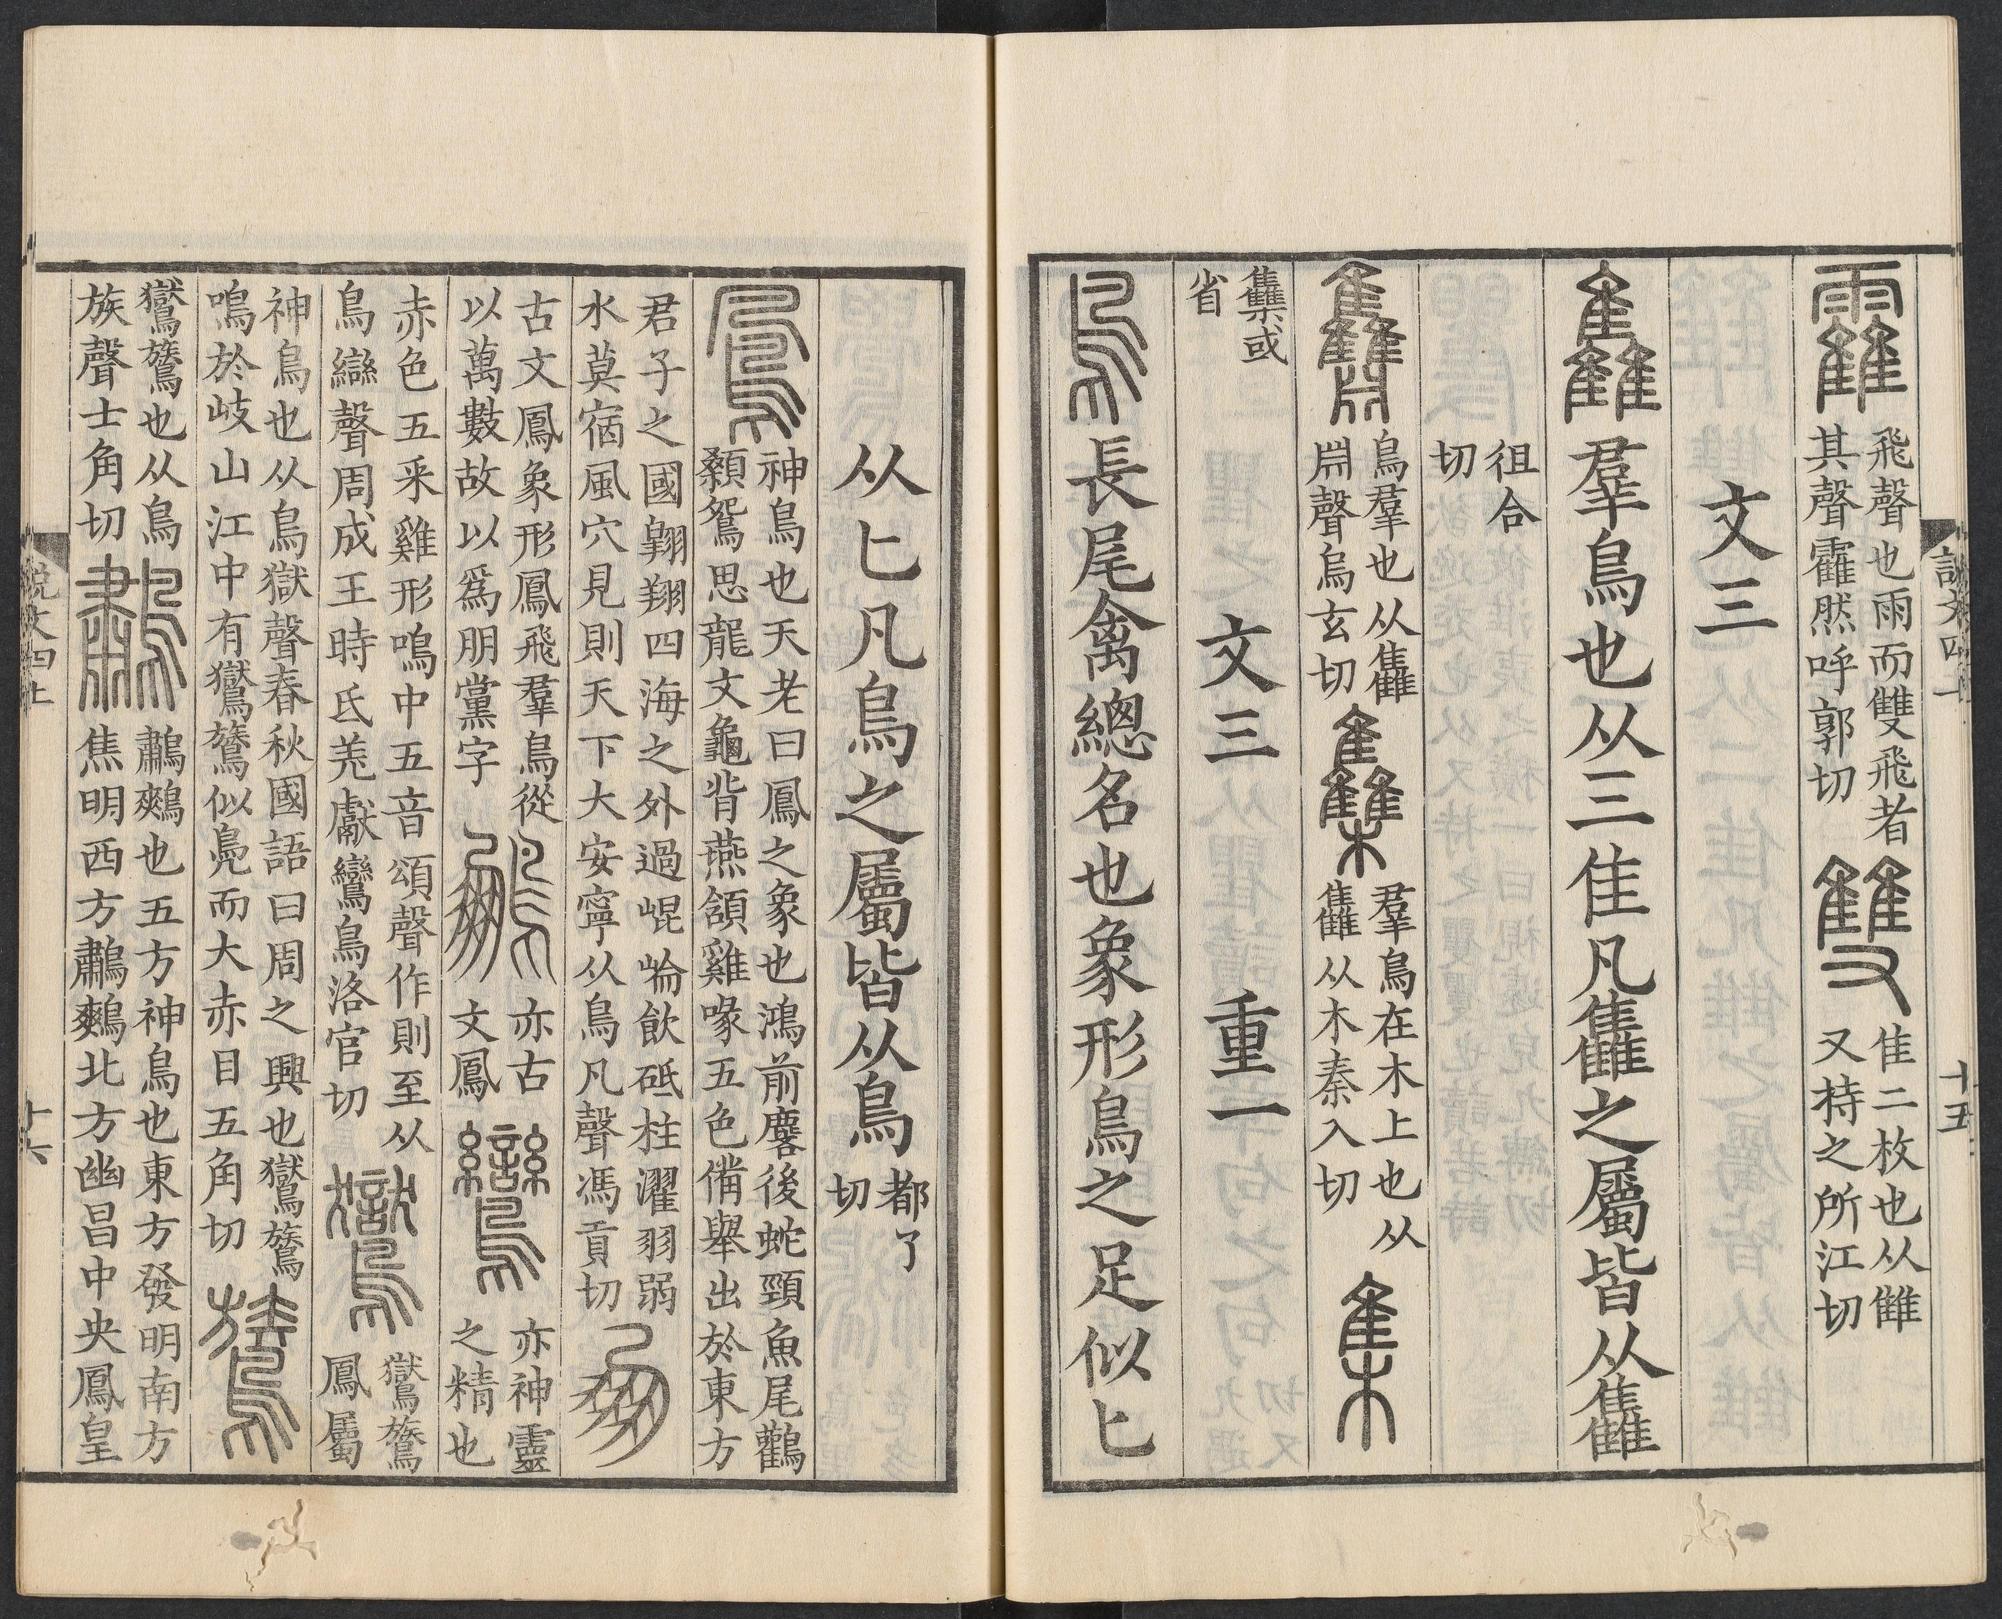 說文四上 十五
靃 飛聲也雨而雙飛者其聲靃然呼郭切 雙 隹二枚也从雔又持之所江切
文三
雥 羣鳥也从三隹凡雥之屬皆从雥
徂合切
鳥羣也从雥𣶒聲烏玄切 雧 羣鳥在木上也从雥从木秦入切 集
雧或省 文三 重一
鳥 長尾禽總名也象形鳥之足似匕
从匕凡鳥之屬皆从鳥 都了切
鳳 神鳥也天老曰鳳之象也鴻前麐後蛇頸魚尾鸛顙鴛思龍文龜背燕頷雞喙五色備舉出於東方
君子之國翺翔四海之外過崐崘飲砥柱濯羽弱水莫宿風穴見則天下大安寧从鳥凡聲馮貢切 朋
古文鳳象形鳳飛羣鳥從以萬數故以爲朋黨字 鵬 亦古文鳳 鸞 亦神靈之精也
赤色五采雞形鳴中五音頌聲作則至从鳥䜌聲周成王時氐羌獻鸞鳥洛官切 鸑 鸑鷟鳳屬
神鳥也从鳥獄聲春秋國語曰周之興也鸑鷟鳴於岐山江中有鸑鷟似鳧而大赤目五角切 鷟
鸑鷟也从鳥族聲士角切 鷫 鷫鷞也五方神鳥也東方發明南方焦明西方鷫鷞北方幽昌中央鳳皇
說文四上 十六